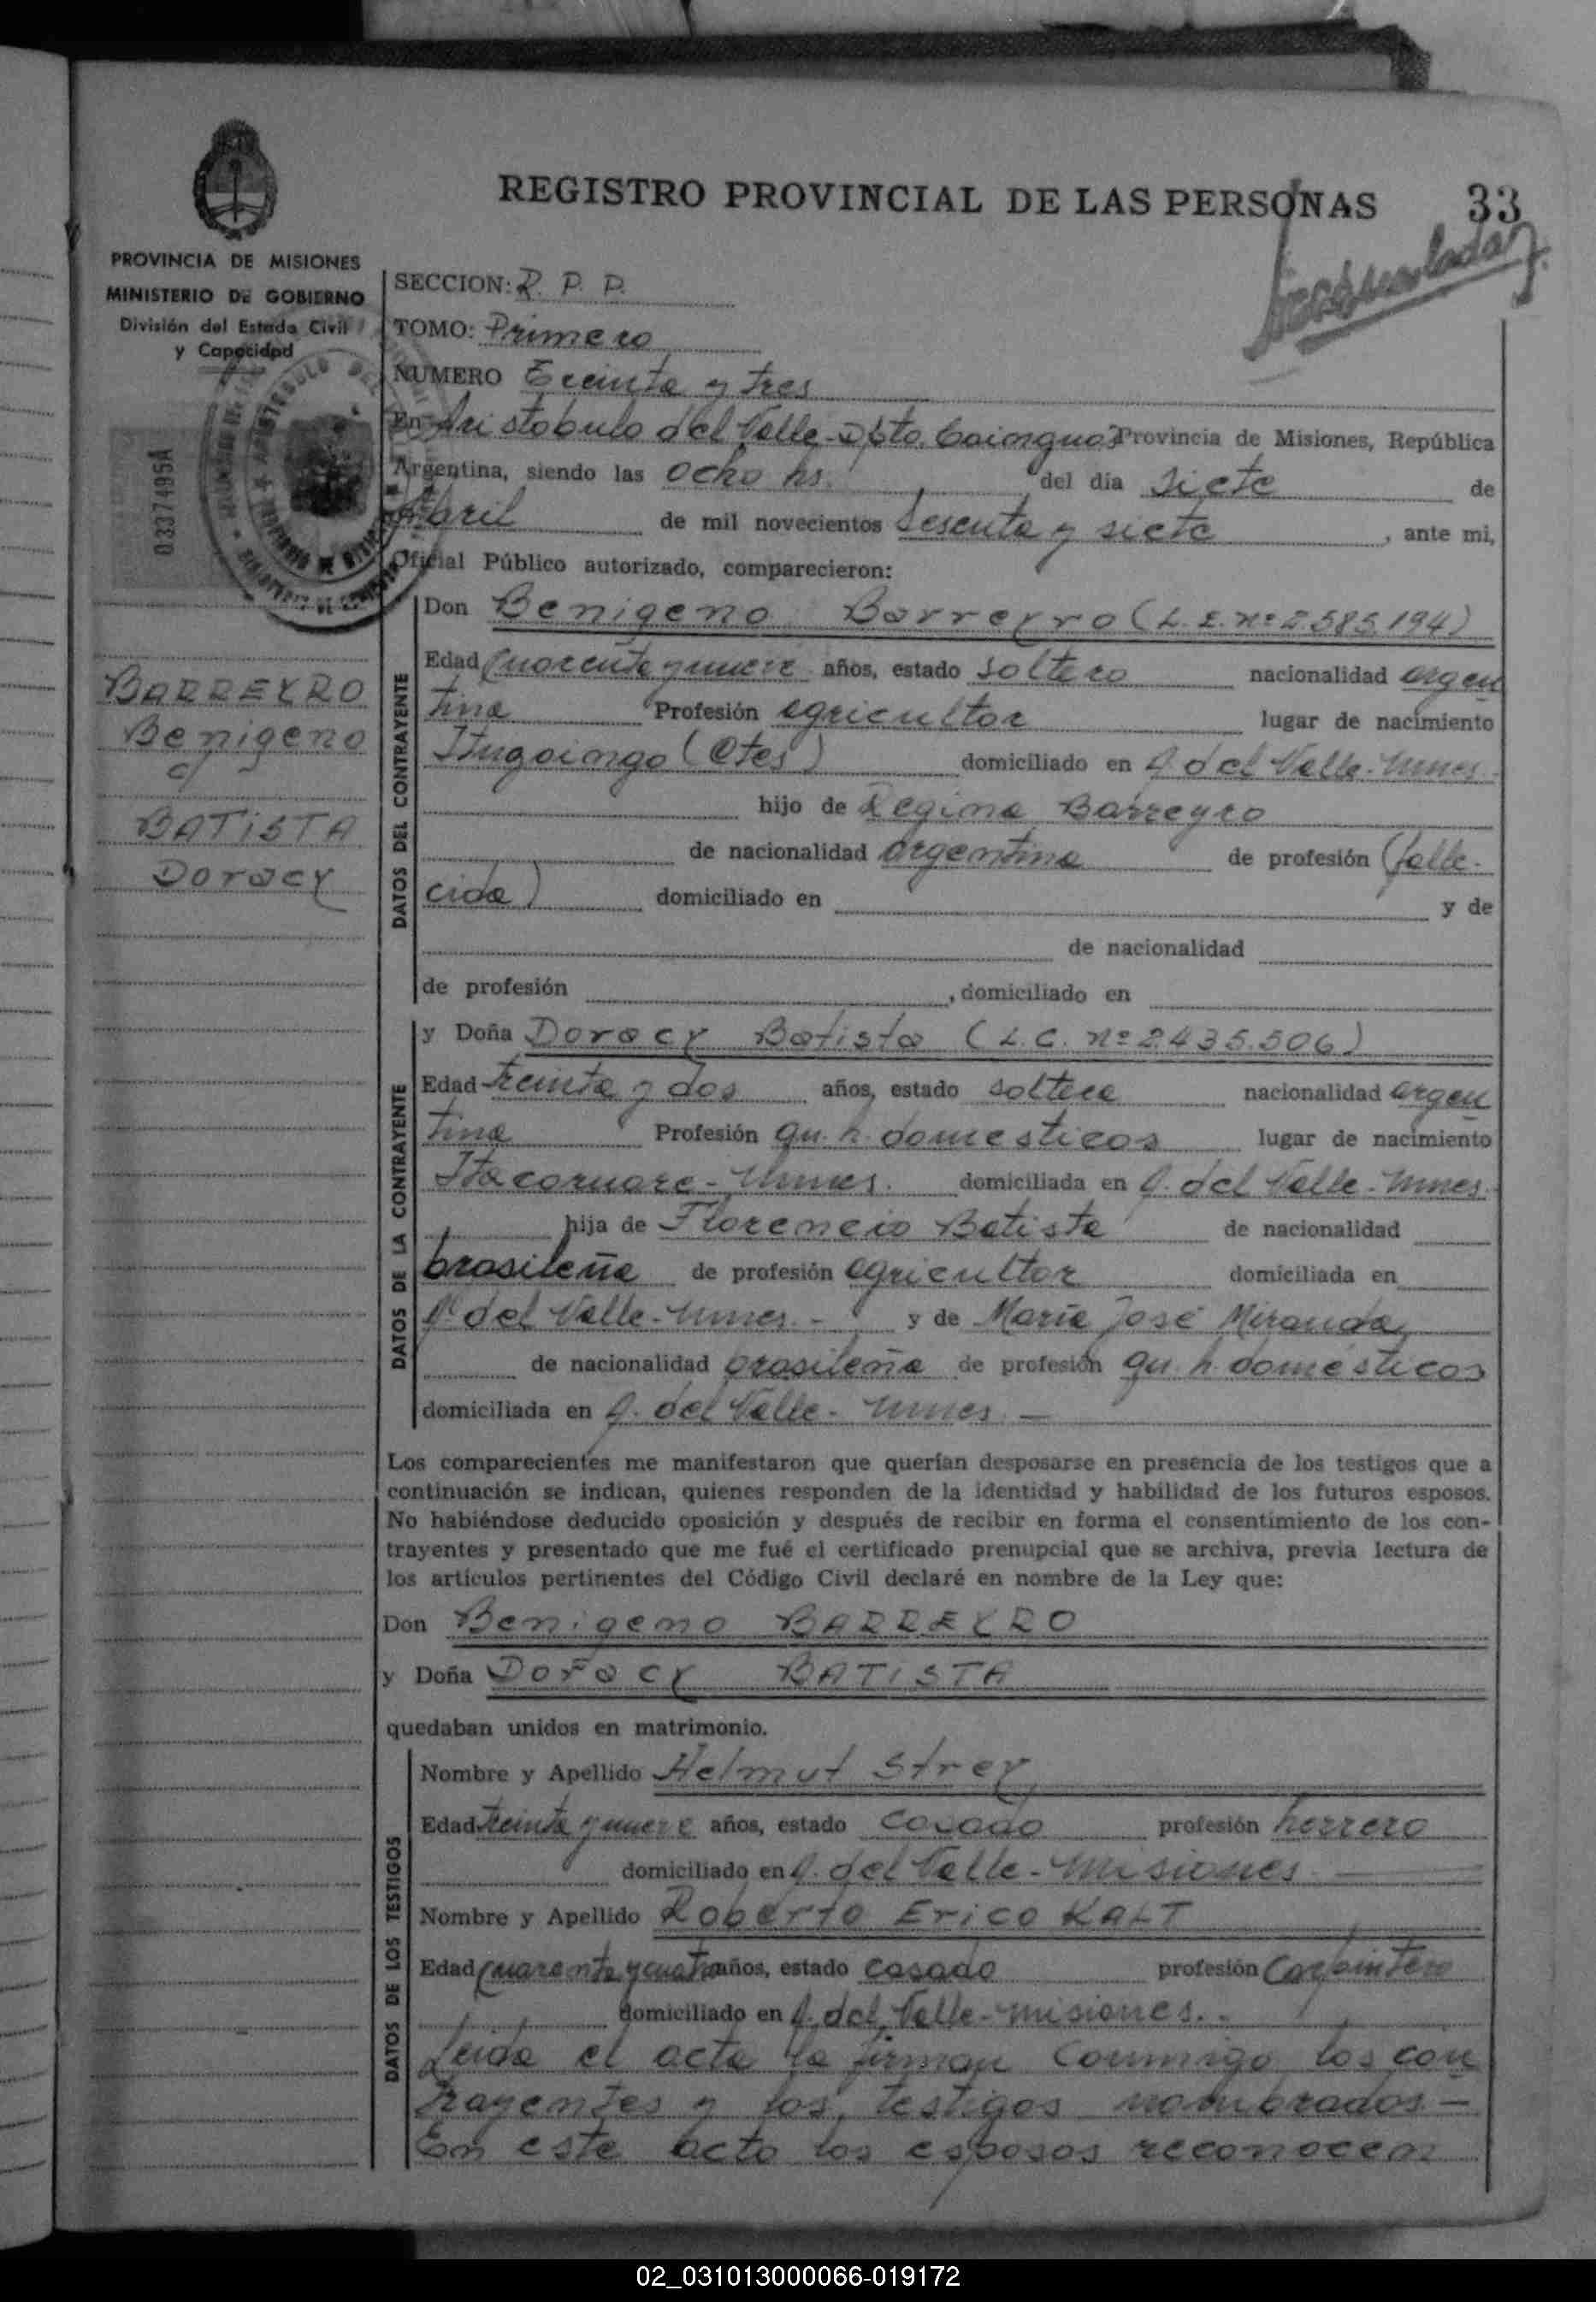 REGISTRO PROVINCIAL DE LAS PERSONAS 33
PROVINCIA DE MISIONES
MINISTERIO DE GOBIERNO
División del Estado Civil
y Capacidad
0337495A
SECCION: R. P. P.
TOMO: Primero
NUMERO Treinta y tres
En Aristobulo del Valle - Dpto. Cainguas Provincia de Misiones, República
Argentina, siendo las ocho hs. del dia siete de
Abril de mil novecientos sesenta y siete, ante mi,
Oficial Público autorizado, comparecieron:
BARREYRO
Benigeno
c/
BATISTA
Doracy
DATOS DEL CONTRAYENTE
Don Benigeno Barreyro (L. E. nº 2.585.194)
Edad cuarenta y nueve años, estado soltero nacionalidad argen
tina Profesión agricultor lugar de nacimiento
(Ctes) domiciliado en A. del Valle - Mnes.
hijo de Regina Barreyro
de nacionalidad argentina de profesión (falle-
cida) domiciliado en y de
de nacionalidad
de profesión , domiciliado en
DATOS DE LA CONTRAYENTE
y Doña Doracy Batista (L. C. nº 2.435.506)
Edad treinta y dos años, estado soltera nacionalidad argen
tina Profesión qu. h. domesticos lugar de nacimiento
Itacaruare - Mnes. domiciliada en A. del Valle - Mnes.
hija de Florencio Batista de nacionalidad
brasileña de profesión agricultor domiciliada en
A. del Valle - Mnes. - y de María José Miranda
de nacionalidad brasileña de profesión qu. h. domésticos
domiciliada en A. del Valle - Mnes. —
Los comparecientes me manifestaron que querían desposarse en presencia de los testigos que a
continuación se indican, quienes responden de la identidad y habilidad de los futuros esposos.
No habiéndose deducido oposición y después de recibir en forma el consentimiento de los con-
trayentes y presentado que me fué el certificado prenupcial que se archiva, previa lectura de
los artículos pertinentes del Código Civil declaré en nombre de la Ley que:
Don Benigeno BARREYRO
y Doña Doracy BATISTA
quedaban unidos en matrimonio.
DATOS DE LOS TESTIGOS
Nombre y Apellido Helmut Strey
Edad treinta y nueve años, estado casado profesión herrero
domiciliado en A. del Valle - Misiones
Nombre y Apellido Roberto Erico KALT
Edad cuarenta y cuatro años, estado casado profesión Carpintero
domiciliado en A. del Valle - misiones. -
Leida el acta la firman conmigo los con
trayentes y los testigos nombrados -
En este acto los esposos reconocen
02_031013000066-019172